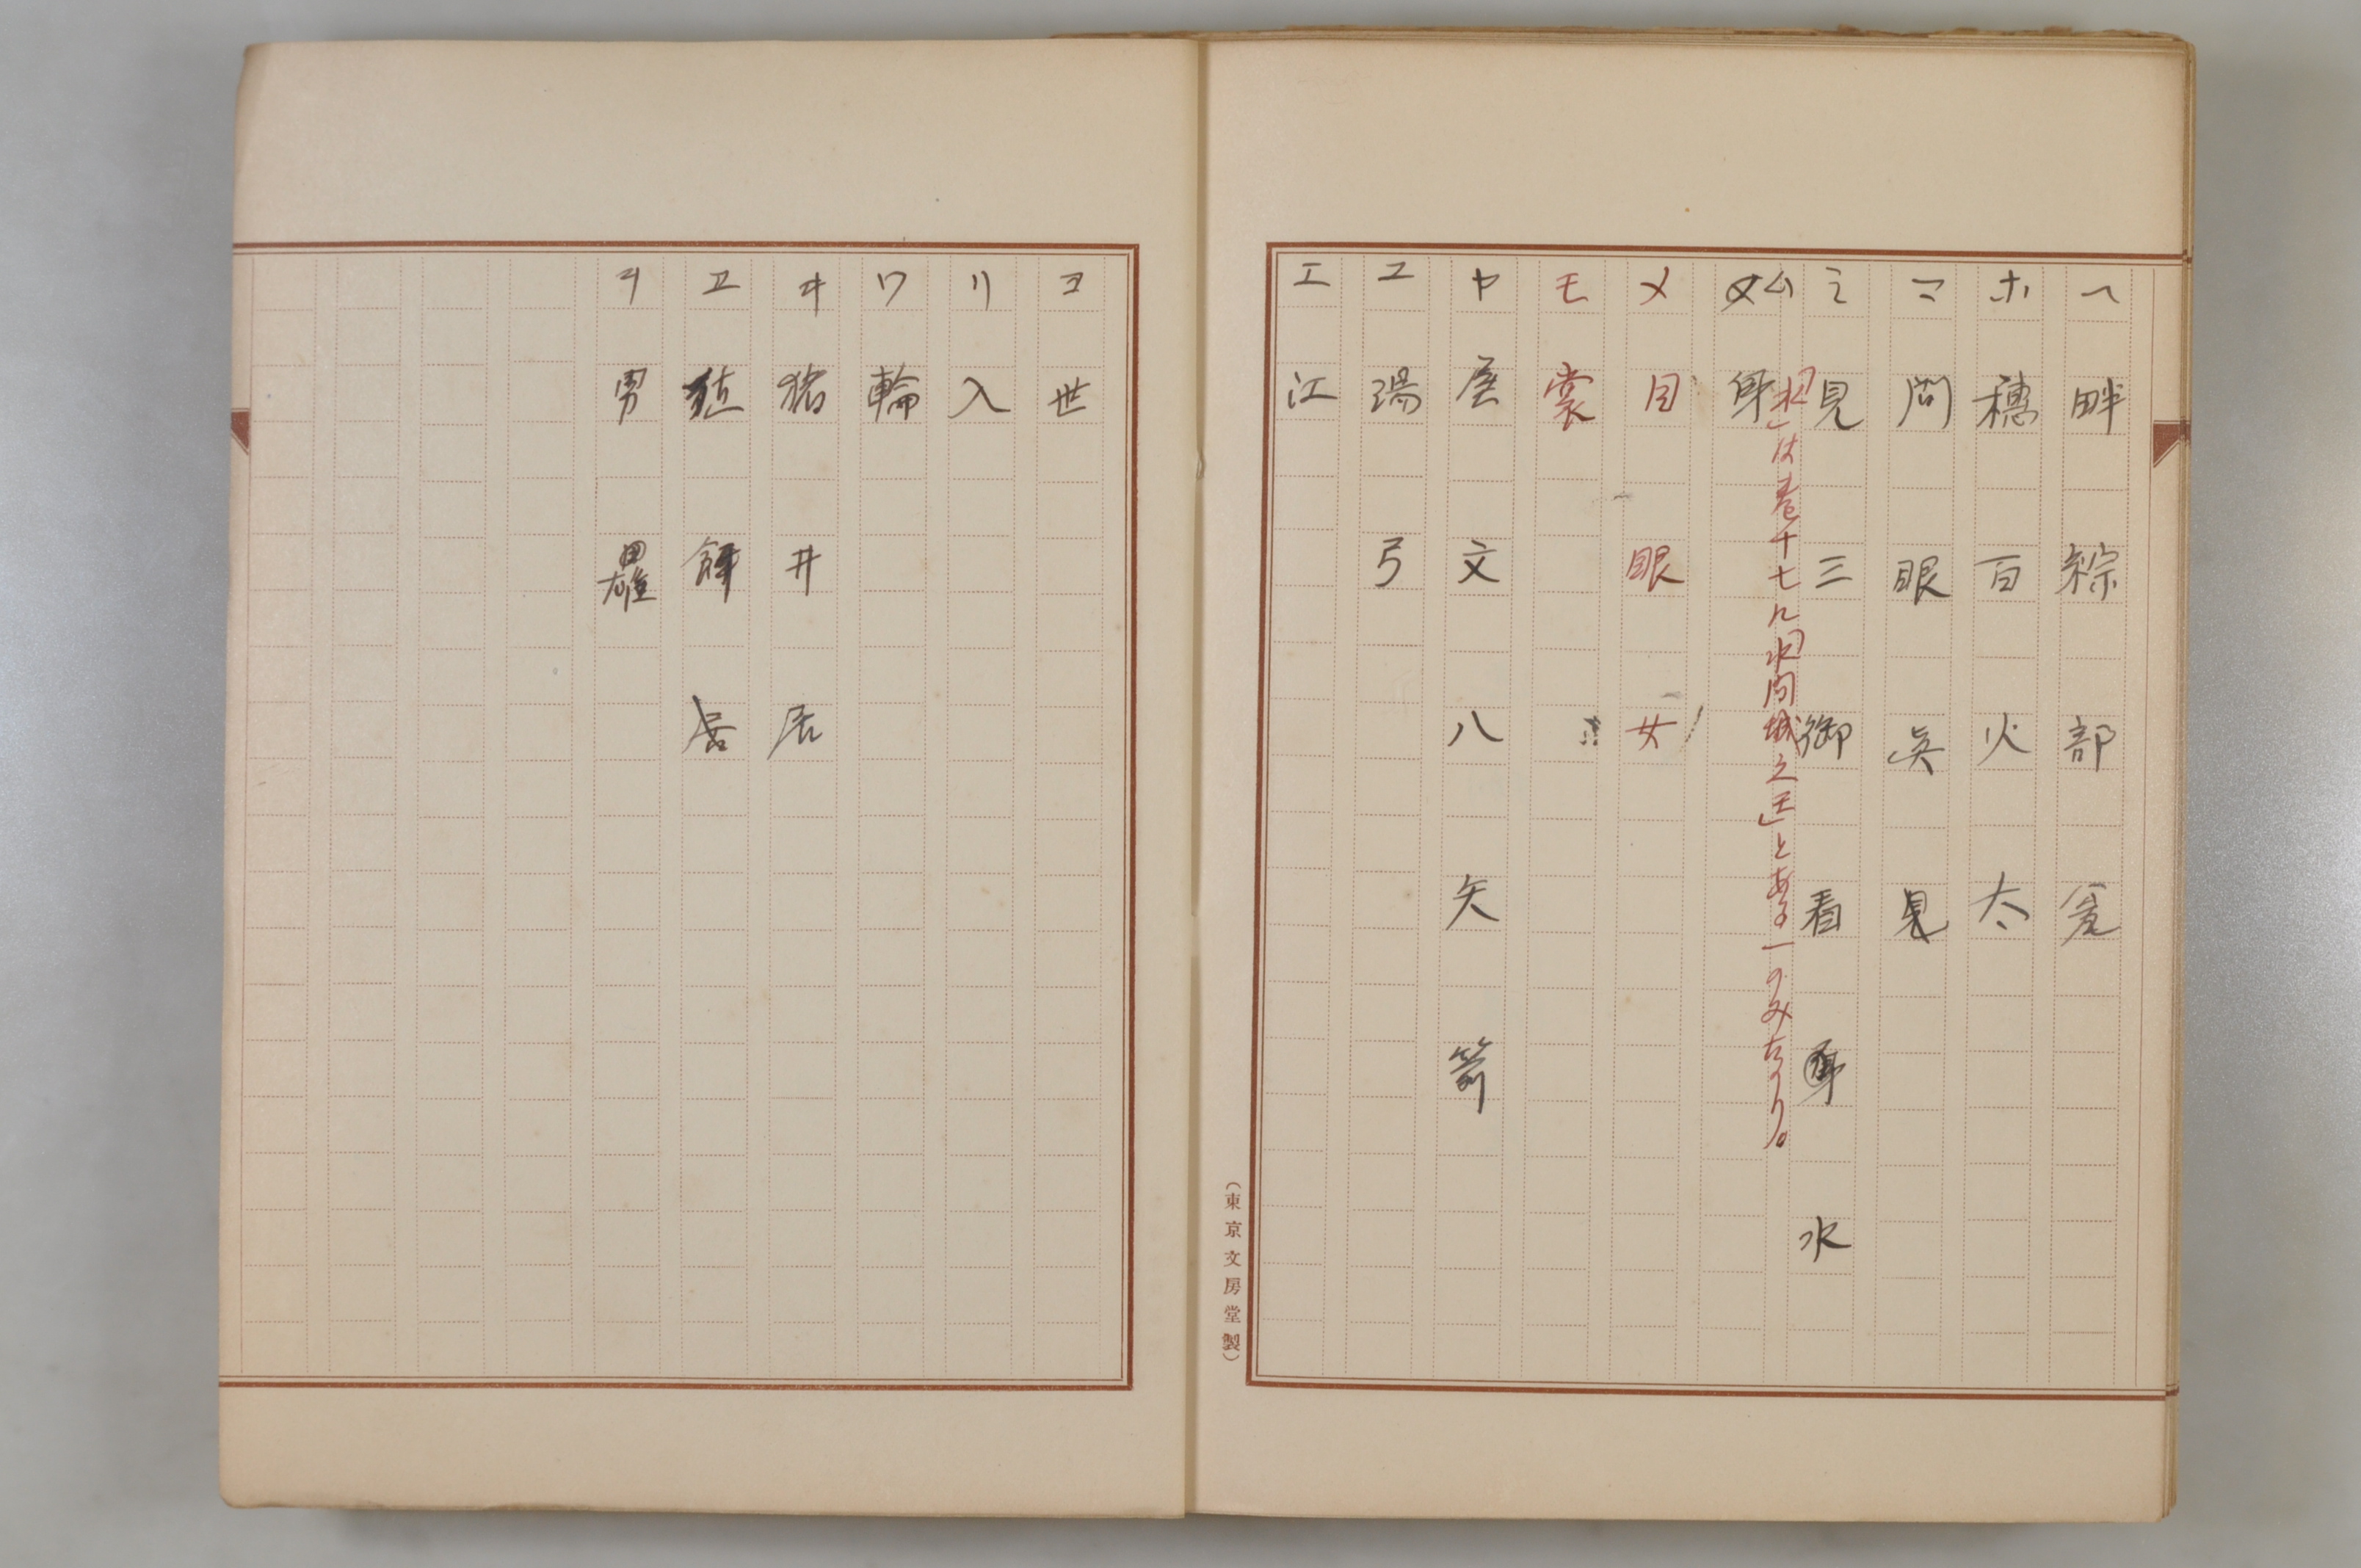 ヘ 畔 綜 部
ホ 穗 百 火 太
マ 問 眼 眞 見
ミ 見 三 御 看 水
「水」は卷十七に「水間城之王」とある一のみなり。
ム 身
メ 目 眼 女
モ 裳
ヤ 屋 文 八 矢 箭
ユ 湯 弓
エ 江
(東京文房堂製)
ヨ 世
リ 入
ワ 輪
ヰ 猪 井 居
ヱ
ヲ 男 雄